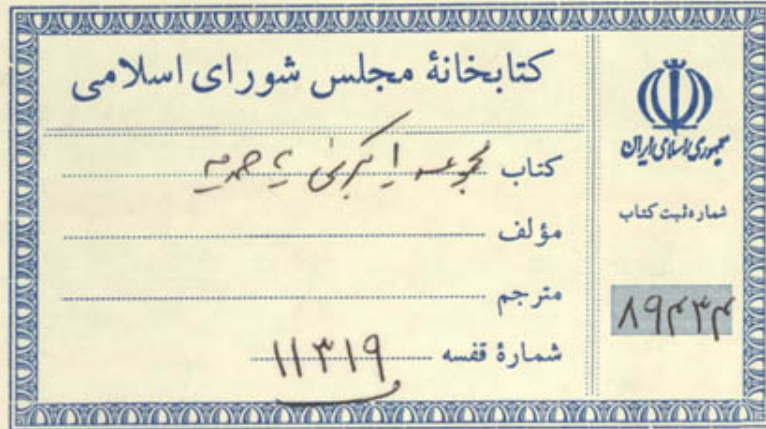 کتابخانهٔ مجلس شورای اسلامی
کتاب مجموعه
مؤلف
مترجم
شمارهٔ قفسه ۱۱۳۱۹
جمهوری اسلامی ایران
شماره ثبت کتاب
۸۹۴۳۴